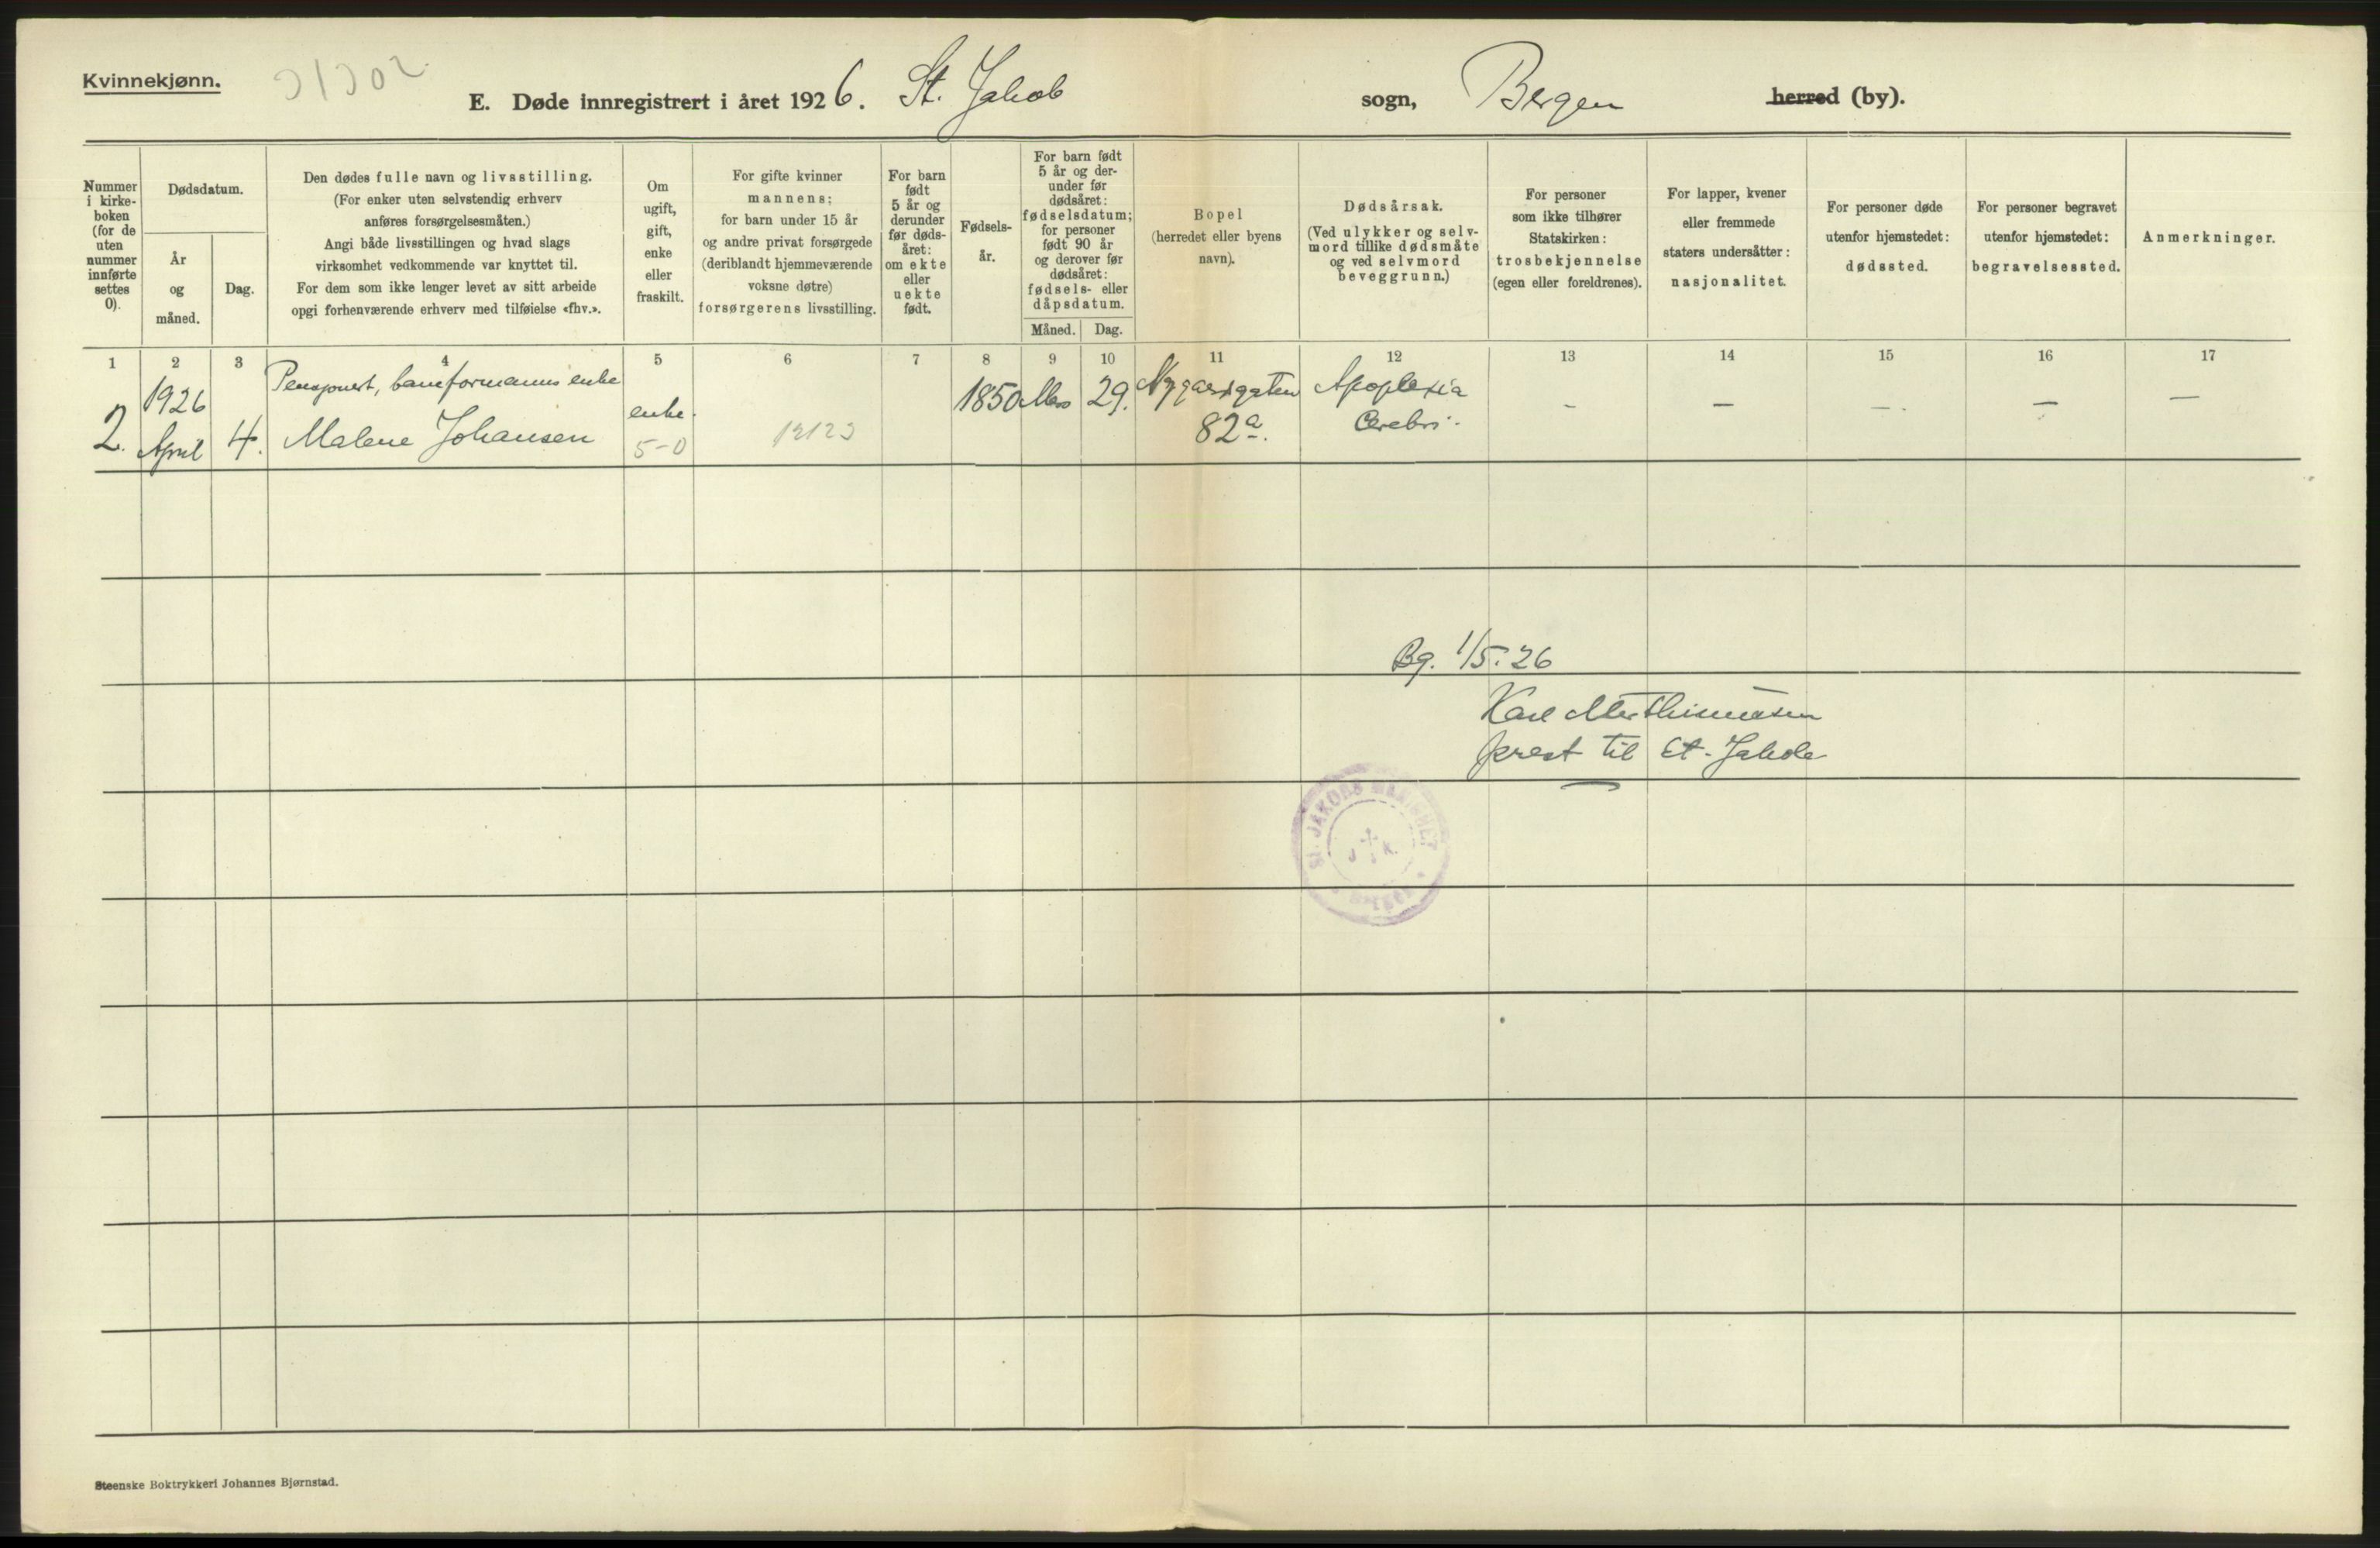 Kvinnekjønn.
E. Døde innregistrert i året 1926. St. Jakob sogn, Bergen herred (by).
Nummer i kirke-boken (for de uten nummer innførte settes 0).
Dødsdatum.
År og måned.
Dag.
Den dødes fulle navn og livsstilling.
(For enker uten selvstendig erhverv
anføres forsørgelsesmåten.)
Angi både livsstillingen og hvad slags
virksomhet vedkommende var knyttet til.
For dem som ikke lenger levet av sitt arbeide
opgi forhenværende erhverv med tilføielse «fhv.».
Om
ugift,
gift,
enke
eller
fraskilt.
For gifte kvinner
mannens;
for barn under 15 år
og andre privat forsørgede
(deriblandt hjemmeværende
voksne døtre)
forsørgerens livsstilling.
For barn
født
5 år og
derunder
før døds-
året:
om ekte
eller
uekte
født.
Fødsels-
år.
For barn født
5 år og der-
under før
dødsåret:
fødselsdatum;
for personer
født 90 år
og derover før
dødsåret:
fødsels- eller
dåpsdatum.
Måned. Dag.
Bopel
(herredet eller byens
navn).
Dødsårsak.
(Ved ulykker og selv-
mord tillike dødsmåte
og ved selvmord
beveggrunn.)
For personer
som ikke tilhører
Statskirken:
trosbekjennelse
(egen eller foreldrenes).
For lapper, kvener
eller fremmede
staters undersåtter:
nasjonalitet.
For personer døde
utenfor hjemstedet:
dødssted.
For personer begravet
utenfor hjemstedet:
begravelsessted.
Anmerkninger.
1 2 3 4 5 6 7 8 9 10 11 12 13 14 15 16 17
2. 1926 April 4.
Pensjonert, baneformanns enke
Malene Johansen
enke.
5-0
12123
1850 29.
Nygaardsgaten
82a.
Apoplexia
Cerebri.
— — — — —
Bg. 1/5. 26
Karl
prest til St. Jakob
ST. JAKOBS MENIGHET
BERGEN
Steenske Boktrykkeri Johannes Bjørnstad.